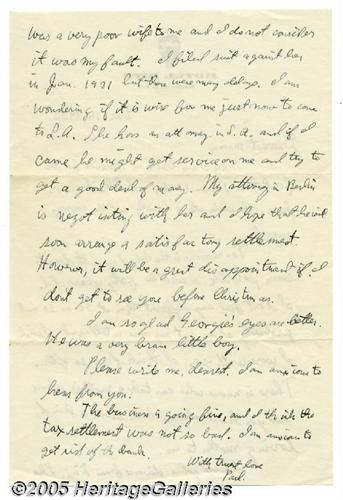 was a very poor wife to me and I do not consider
it was my fault. I filed suit against her
in Jan. 1931 but there were many delays. I am
wondering if it is wise for me just now to come
to L.A. She has an attorney in L.A. and if I
came he might get service on me and try to
get a good deal of money. My attorney in Berlin
is negotiating with her and I hope that he will
soon arrange a satisfactory settlement.
However, it will be a great disappointment if I
don't get to see you before Christmas.
I am so glad Georgie's eyes are better.
He was a very brave little boy.
Please write me, dearest. I am anxious to
hear from you.
The business is going fine, and I think the
tax settlement was not so bad. I am anxious to
get rid of the bank.
With truest love
Paul.
©2005 HeritageGalleries